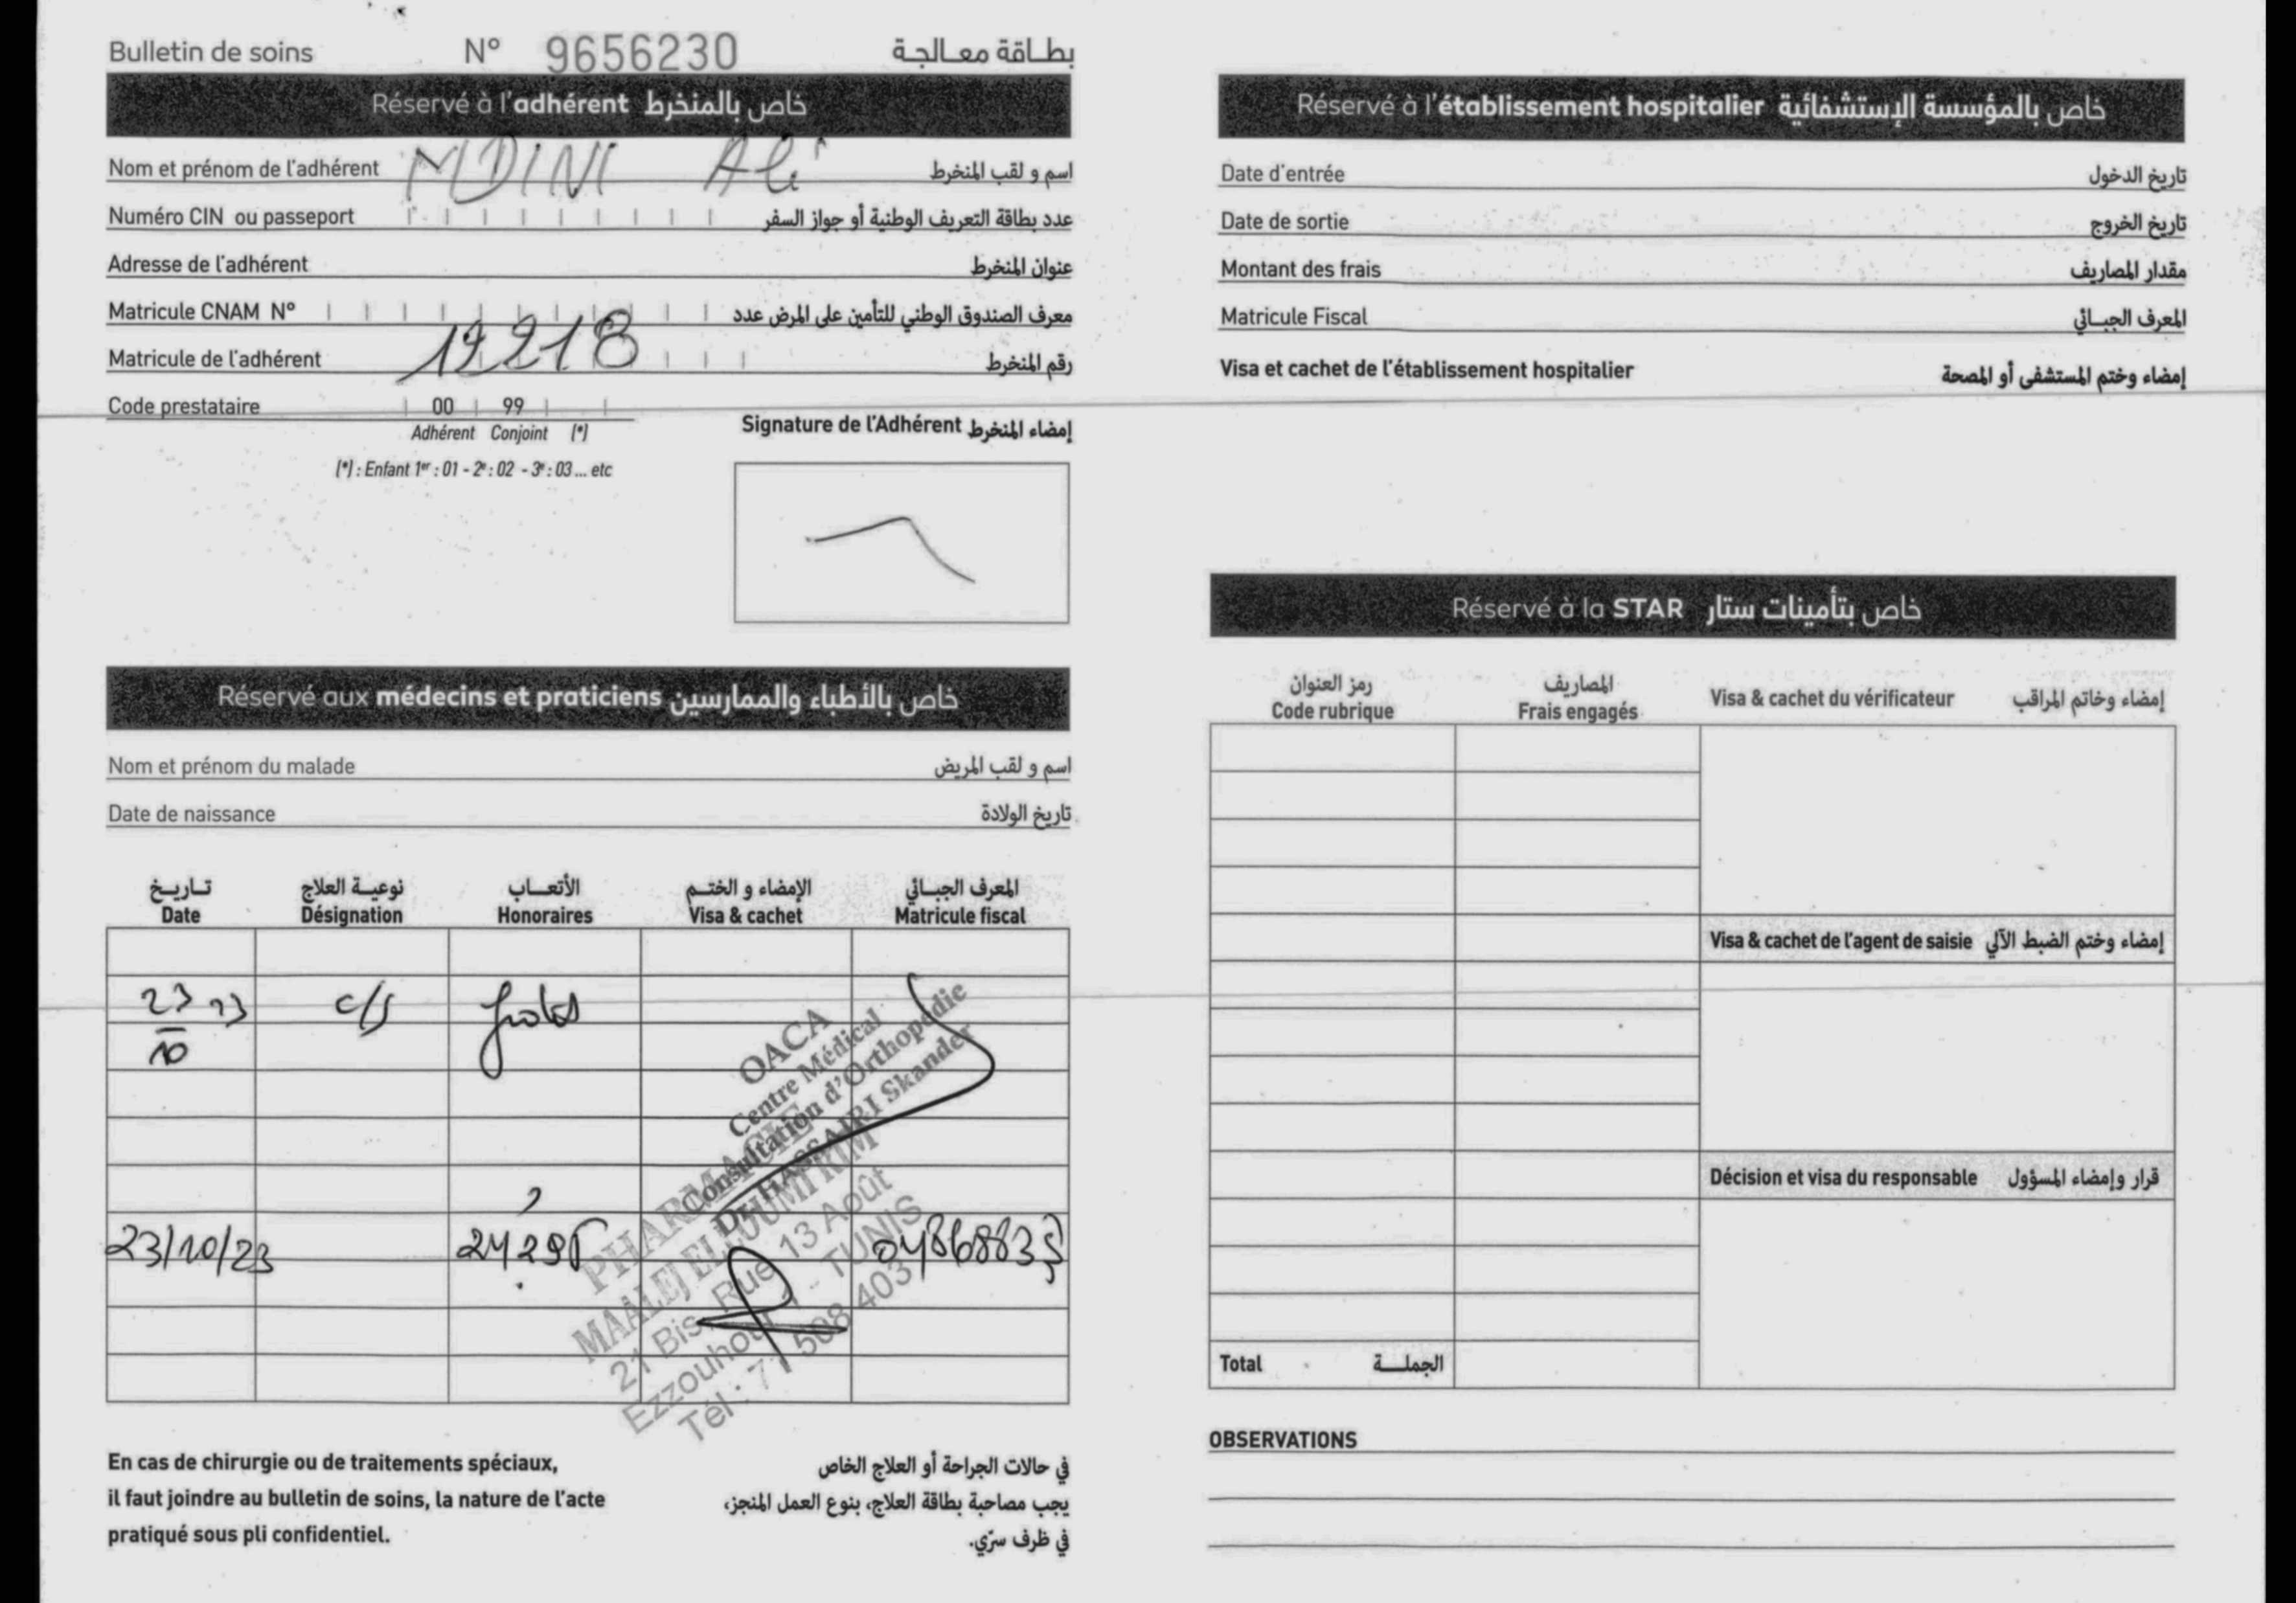 Bulletin de soins N° 9656230 بطاقة معالجة
Réservé à l'adhérent خاص بالمنخرط
Nom et prénom de l'adhérent MDINI Ali اسم و لقب المنخرط
Numéro CIN ou passeport عدد بطاقة التعريف الوطنية أو جواز السفر
Adresse de l'adhérent عنوان المنخرط
Matricule CNAM N° معرف الصندوق الوطني للتأمين على المرض عدد
Matricule de l'adhérent 19218 رقم المنخرط
Code prestataire 00 99
Adhérent Conjoint (*)
(*) : Enfant 1er : 01 - 2e : 02 - 3e : 03 ... etc
Signature de l'Adhérent إمضاء المنخرط
Réservé aux médecins et praticiens خاص بالأطباء والممارسين
Nom et prénom du malade اسم و لقب المريض
Date de naissance تاريخ الولادة
تاريخ نوعية العلاج الأتعاب الإمضاء و الختم المعرف الجبائي
Date Désignation Honoraires Visa & cachet Matricule fiscal
23 23 c/s
10
OACA
Centre Médical
Consultation d'Orthopédie
Dr HASSAIRI Skander
23/10/23
PHARMACIE
MAALEJ ELLOUMI RIM
21 Bis, Rue 13 Août
Ezzouhour - TUNIS
Tél : 71 508 403
En cas de chirurgie ou de traitements spéciaux,
il faut joindre au bulletin de soins, la nature de l'acte
pratiqué sous pli confidentiel.
في حالات الجراحة أو العلاج الخاص
يجب مصاحبة بطاقة العلاج، بنوع العمل المنجز،
في ظرف سرّي.
Réservé à l'établissement hospitalier خاص بالمؤسسة الإستشفائية
Date d'entrée تاريخ الدخول
Date de sortie تاريخ الخروج
Montant des frais مقدار المصاريف
Matricule Fiscal المعرف الجبائي
Visa et cachet de l'établissement hospitalier إمضاء وختم المستشفى أو المصحة
Réservé à la STAR خاص بتأمينات ستار
رمز العنوان المصاريف
Code rubrique Frais engagés Visa & cachet du vérificateur إمضاء وخاتم المراقب
Visa & cachet de l'agent de saisie إمضاء وختم الضبط الآلي
Décision et visa du responsable قرار وإمضاء المسؤول
Total الجملة
OBSERVATIONS